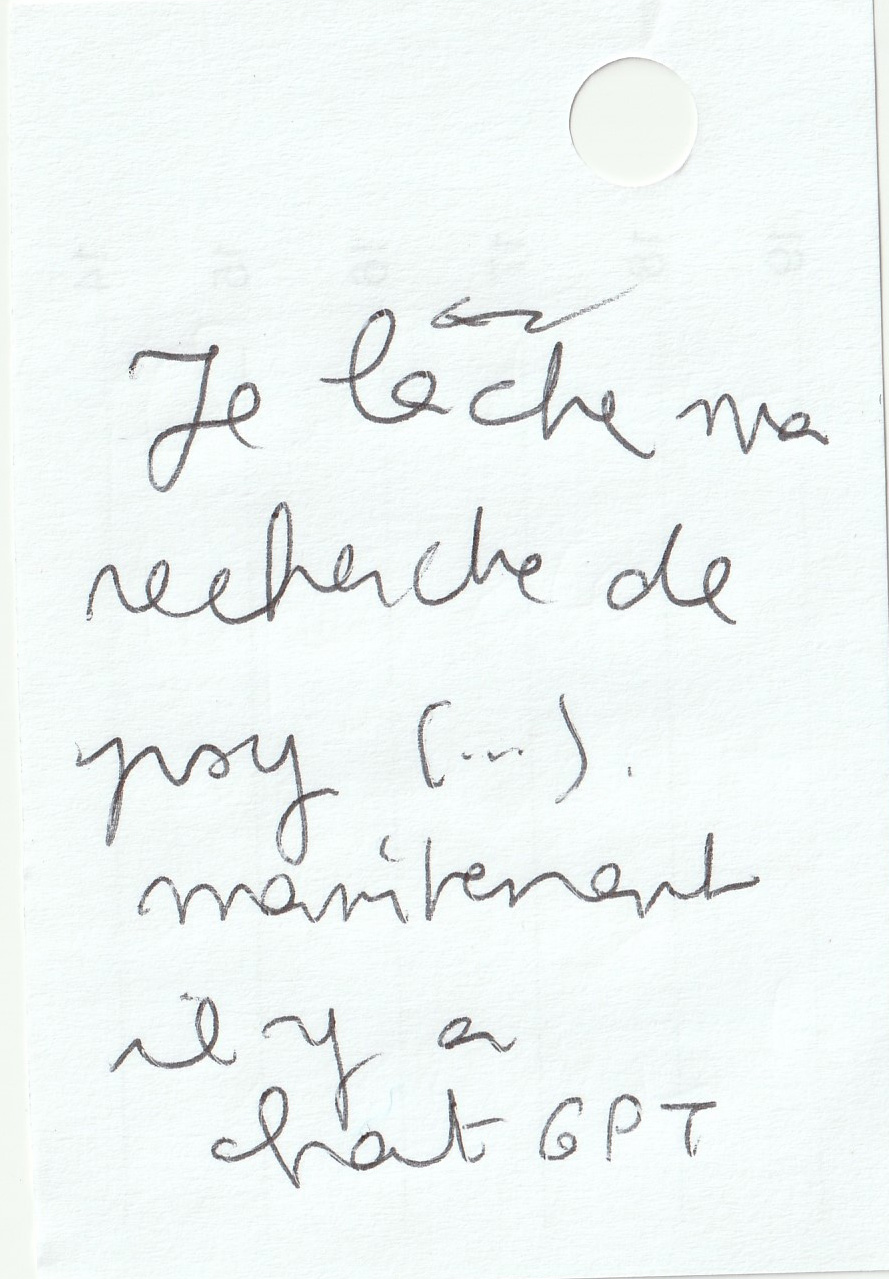 Je lâche ma
recherche de
psy (...).
maintenant
il y a
chat GPT